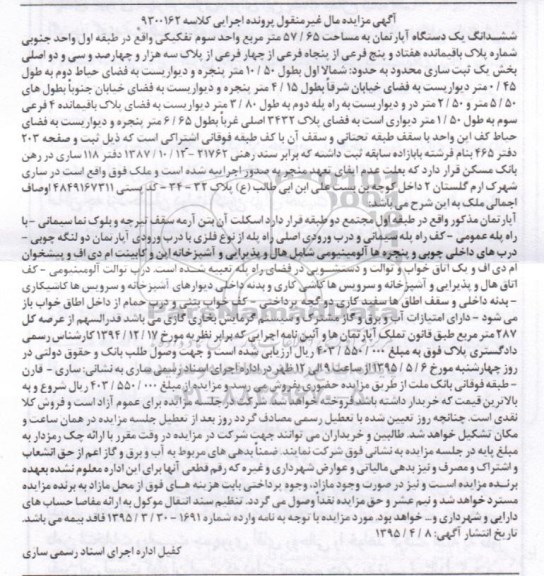 آگهی مزایده مال غیرمنقول پرونده اجرایی کلاسه ۹۳۰۰۱۶۲
ششدانگ یک دستگاه آپارتمان به مساحت ۶۵ / ۵۷ متر مربع واحد سوم تفکیکی واقع در طبقه اول واحد جنوبی
شماره پلاک باقیمانده هفتاد و پنج فرعی از پنجاه فرعی از چهار فرعی از پلاک سه هزار و چهارصد و سی و دو اصلی
بخش یک ثبت ساری محدود به حدود: شمالا اول بطول ۵۰ / ۱۰ متر پنجره و دیواریست به فضای حیاط دوم به طول
۴۵ / ۰ متر دیواریست به فضای خیابان شرقاً بطول ۱۵ / ۴ متر پنجره و دیواریست به فضای خیابان جنوبا بطول های
۵۰ / ۵ متر و ۵۰ / ۲ متر در و دیواریست به راه پله دوم به طول ۸۰ / ۳ متر دیواریست به پلاک باقیمانده ۴ فرعی
سوم به طول ۵۰ / ۱ متر دیواری است به فضای پلاک ۳۴۳۲ اصلی غرباً بطول ۶۵ / ۶ متر پنجره و دیواریست به فضای
حیاط کف این واحد با سقف طبقه تحتانی و سقف آن با کف طبقه فوقانی اشتراکی است که ذیل ثبت و صفحه ۲۰۳
دفتر ۴۶۵ بنام فرشته پاپازاده سابقه ثبت داشته که برابر سند رهنی ۲۱۷۶۲ - ۱۲ / ۱۰ / ۱۳۸۷ دفتر ۱۱۸ ساری در رهن
بانک مسکن قرار دارد که بعلت عدم ایفای تعهد منجر به صدور اجراییه شده است و ملک فوق واقع است در ساری
شهرک ارم گلستان ۲ داخل کوچه بن بست علی ابن ابی طالب (ع) پلاک ۳۲ - ۳۴ - کد پستی ۴۸۴۹۱۶۷۳۱۱ اوصاف
اجمالی ملک به این شرح می باشد:
آپارتمان مذکور واقع در طبقه اول مجتمع دو طبقه قرار دارد اسکلت آن بتن آرمه سقف تیرچه و بلوک نما سیمانی - با
راه پله عمومی - کف راه پله سیمانی و درب ورودی اصلی راه پله از نوع فلزی با درب ورودی آپارتمان دو لنگه چوبی -
درب های داخلی چوبی و پنجره ها آلومینیومی شامل هال و پذیرایی و آشپزخانه اپن و کابینت ام دی اف و پیشخوان
ام دی اف و یک اتاق خواب و توالت و دستشویی در فضای راه پله تعبیه شده است. درب توالت آلومینیومی - کف
اتاق هال و پذیرایی و آشپزخانه و سرویس ها کاشی کاری و بدنه داخلی دیوارهای آشپزخانه و سرویس ها کاشیکاری
- بدنه داخلی و سقف اطاق ها سفید کاری دو گچه پرداختی - کف خواب بتنی و درب حمام از داخل اطاق خواب باز
می شود - دارای امتیازات آب و برق و گاز مشترک و سیستم گرمایش بخاری گازی می باشد قدرالسهم از عرصه کل
۲۸۷ متر مربع طبق قانون تملک آپارتمان ها و آئین نامه اجرایی که برابر نظریه مورخ ۱۷ / ۱۲ / ۱۳۹۴ کارشناس رسمی
دادگستری پلاک فوق به مبلغ ۰۰۰ / ۵۵۰ / ۴۰۳ ریال ارزیابی شده است و جهت وصول طلب بانک و حقوق دولتی در
روز چهارشنبه مورخ ۶ / ۵ / ۱۳۹۵ از ساعت ۹ الی ۱۲ ظهر در اداره اجرای اسناد رسمی ساری به نشانی: ساری - قارن
- طبقه فوقانی بانک ملت از طریق مزایده حضوری بفروش می رسد و مزایده از مبلغ ۰۰۰ / ۵۵۰ / ۴۰۳ ریال شروع و به
بالاترین قیمت که خریدار داشته باشد فروخته خواهد شد. شرکت در جلسه مزایده برای عموم آزاد است و فروش کلا
نقدی است. چنانچه روز تعیین شده با تعطیل رسمی مصادف گردد روز بعد از تعطیل جلسه مزایده در همان ساعت و
مکان تشکیل خواهد شد. طالبین و خریداران می توانند جهت شرکت در مزایده در وقت مقرر با ارائه چک رمزدار به
مبلغ پایه در جلسه مزایده به نشانی فوق شرکت نمایند. ضمنا بدهی های مربوط به آب و برق و گاز اعم از حق انشعاب
و اشتراک و مصرف و نیز بدهی مالیاتی و عوارض شهرداری و غیره که رقم قطعی آنها برای این اداره معلوم نشده بعهده
برنده مزایده است و نیز در صورت وجود مازاد، وجوه پرداختی بابت هزینه های فوق از محل مازاد به برنده مزایده
مسترد خواهد شد و نیم عشر و حق مزایده نقداً وصول می گردد. تنظیم سند انتقال موکول به ارائه مفاصا حساب های
دارایی و شهرداری و... خواهد بود. مورد مزایده با توجه به نامه وارده شماره ۱۶۹۱ - ۳۰ / ۳ / ۱۳۹۵ فاقد بیمه می باشد.
تاریخ انتشار آگهی: ۸ / ۴ / ۱۳۹۵
کفیل اداره اجرای اسناد رسمی ساری